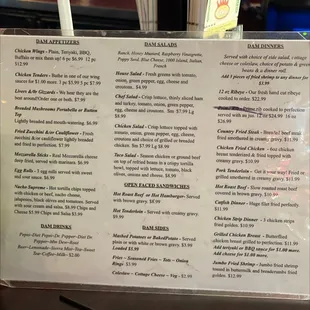 DAM APPETIZERS
Chicken Wings - Plain, Teriyaki, BBQ,
Buffalo or mix them up! 6 pc $6.99 12 pc
$12.99
Chicken Tenders - Buffet in one of our wing
sauce for $1.00 more! 3 pc $5.99 5 pc $7.99
Livers &/0r Gizzards - We hear they are the
best around! Order one or both. $7.99
Breaded Mushrooms Portabella or Button
Top
Lightly breaded and mouth-watering. $6.99
Fried Zucchini &/or Cauliflower - Fresh
zucchini &/or cauliflower lightly breaded
and fried to perfection. $7.99
Mozzarella Sticks - Real Mozzarella cheese
fairy fried, served with marinara. $6.99
Egg Rolls - 3 egg rolls served with sweet
and sour sauce. $6.99
Nacho Supreme - Hot tortilla chips topped
with chicken or beef, nacho cheese,
jalapenos, black olives and tomatoes. Served
with sour cream and salsa. $8.99 Chips and
Cheese $5.99 Chips and Salsa $5.99
DAM DRINKS
Pepsi-Diet Pepsi-Dr. Pepper-Diet Dr.
Pepper-Mtn Dew-Root
Beer-Lemonade-Sierra Mist-Tea-Sweet
Tea-Coffee-Milk - $2.00
DAM SALADS
Ranch, Honey Mustard, Raspberry Vinaigrette,
Poppy Seed, Blue Cheese, 1000 Island, Italian,
French
House Salad - Fresh greens with tomato,
onion, green pepper, egg, cheese, and
croutons. $4.99
Chef Salad - Crisp lettuce, thinly sliced ham
and turkey, tomato, onion, green pepper,
egg, cheese, and croutons. Sm $7.99 Lg
$8.99
Chicken Salad - Crisp lettuce topped with
tomato, onion, green pepper, egg, cheese
and croutons with grilled or breaded
chicken. Sm $7.99 Lg $8.99
Taco Salad - Season chicken or ground beef
on top of refried beans in a crispy tortilla
bowl, topped with lettuce, tomato, black
olives, onions and cheese. $8.99
OPEN FACED SANDWICHES
Hot Roast Beef or Hot Hamburger- Served
with brown gravy. $8.99
Hot Tenderloin - Served with creamy gravy.
$9.99
DAM SIDES
Mashed Potatoes or Baked Potato - Served
plain or with white or brown gravy. $3.99
Loaded $5.99
Fries - Seasoned Fries - Tots - Onion
Rings $3.99
Coleslaw - Cottage Cheese - Veg - $2.99
DAM DINNERS
Served with choice of side salad, cottage
cheese or coleslaw, choice of potato & green
beans & a dinner roll
Add 3 pieces of fried shrimp to any dinner for
$3.99
12 oz Ribeye - Our fresh hand cut ribeye
cooked to order. $22.99
cooked to perfection
served with au jus. 12 oz $24.99 16 oz
$26.99
Country Fried Steak - Breaded beef steak
fried served smothered in creamy gravy. $11.99
Chicken Fried Chicken - hot chicken
breast tenderized & fried topped with
creamy gravy. $10.99
Pork Tenderloin - Get it your way! Fried or
grilled smothered in creamy gravy. $11.99
Hot Roast Beef - Slow roasted roast beef
covered in brown gravy. $10.99
Catfish Dinner - Huge filet fried perfectly
$11.99
Chicken Strip Dinner - 5 chicken strips
fried golden. $10.99
Grilled Chicken Breast - Butterflied
chicken breast grilled to perfection. $11.99
Add teriyaki or BBQ sauce for $1.00 more.
Add cheese for $1.00 more.
Jumbo Fried Shrimp - Jumbo fried shrimp
tossed in buttermilk and breadcrumbs fried
golden. $12.99